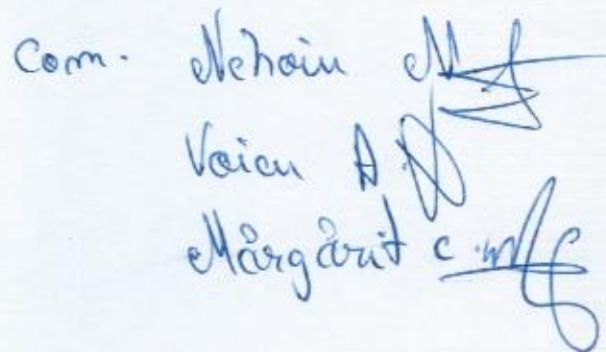 Com. Nehoiu M
Voicu A.
Mărgărit C.